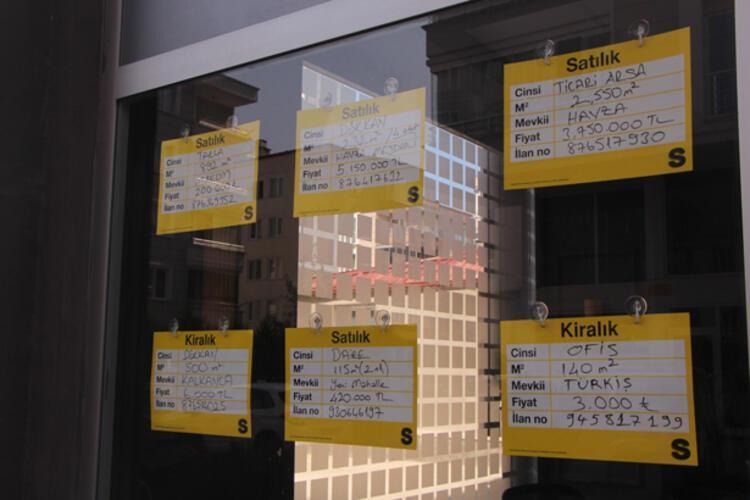 Satılık
Cinsi TARLA
M² 892 m²
Mevkii
Fiyat 200.000 TL
İlan no 876349352
S
Satılık
Cinsi DÜKKAN
M²
Mevkii HAVZA MEYDAN
Fiyat 5 150.000 TL
İlan no 876417632
S
Satılık
Cinsi TİCARİ ARSA
M² 2,550 m²
Mevkii HAVZA
Fiyat 3,750.000 TL
İlan no 876517930
S
Kiralık
Cinsi DÜKKAN
M² 500 m²
Mevkii KALKANCA
Fiyat 6.000 TL
İlan no
S
Satılık
Cinsi DAİRE
M² 115 m² (2+1)
Mevkii Yeni Mahalle
Fiyat 420.000 TL
İlan no 930646197
S
Kiralık
Cinsi OFİS
M² 140 m²
Mevkii TÜRKİŞ
Fiyat 3.000 ₺
İlan no 945817199
S